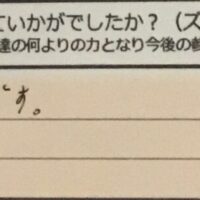 ていかがでしたか？（ズ
達の何よりの力となり今後の参
です。